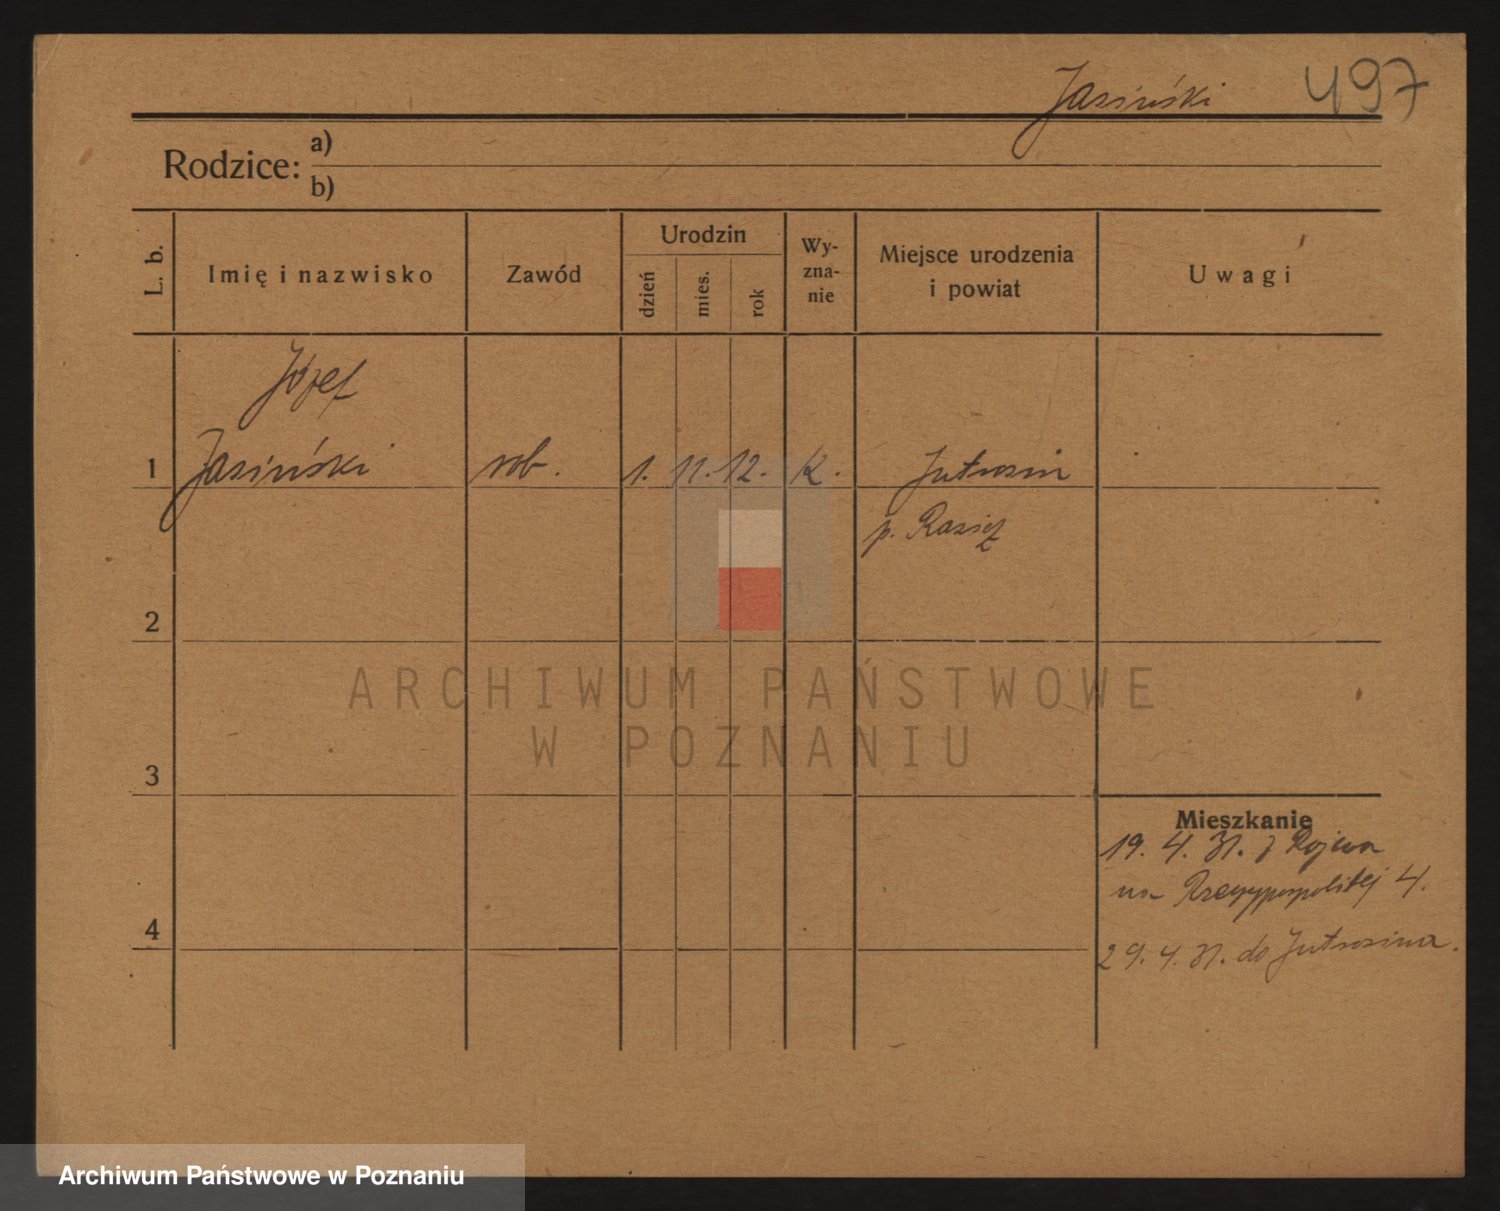 Jasiński 497
Rodzice:
a)
b)
L. b.
Imię i nazwisko
Zawód
Urodzin
dzień
mies.
rok
Wy-
zna-
nie
Miejsce urodzenia
i powiat
Uwagi
Józef
1 Jasiński rob. 1. 11. 12. K. Jutrosin
p. Rasicz
2
ARCHIWUM PAŃSTWOWE
W POZNANIU
3
Mieszkanie
19. 4. 31. z
na Rzeczypospolitej 4.
4
29. 4. 31. do Jutrosina.
Archiwum Państwowe w Poznaniu